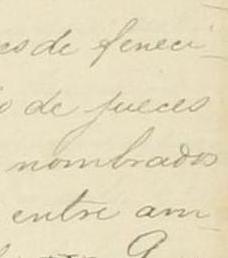 es de feneci-
o de jueces
nombrados
entre am-